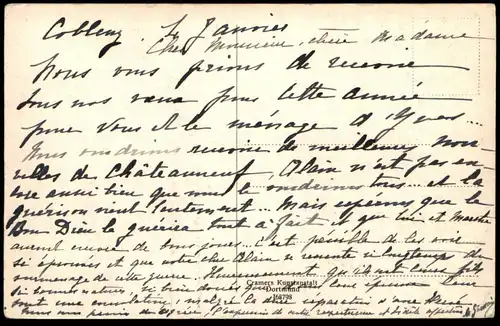 Coblenz, 4 Janvier
Cher Monsieur, chère Madame
Nous vous prions de recevoir
tous nos vœux pour cette année
pour vous et le ménage d'Yves...
Nous voudrions recevoir de meilleures nou-
velles de Châteauneuf, Alain n'est pas en-
core aussi bien que nous le voudrions tous... et la
guérison vient lentement. Mais espérons que le
Bon Dieu le guérira tout à fait et que lui et Marthe
auront encore de bons jours... c'est pénible de les voir
si éprouvés et que votre cher Alain se ressente si longtemps du
surmenage de cette guerre. Heureusement qu'ils ont leurs fils
si bonnes natures
tout une consolation, malgré la dure séparation d'avec
Cramers Kunstanstalt
Dortmund